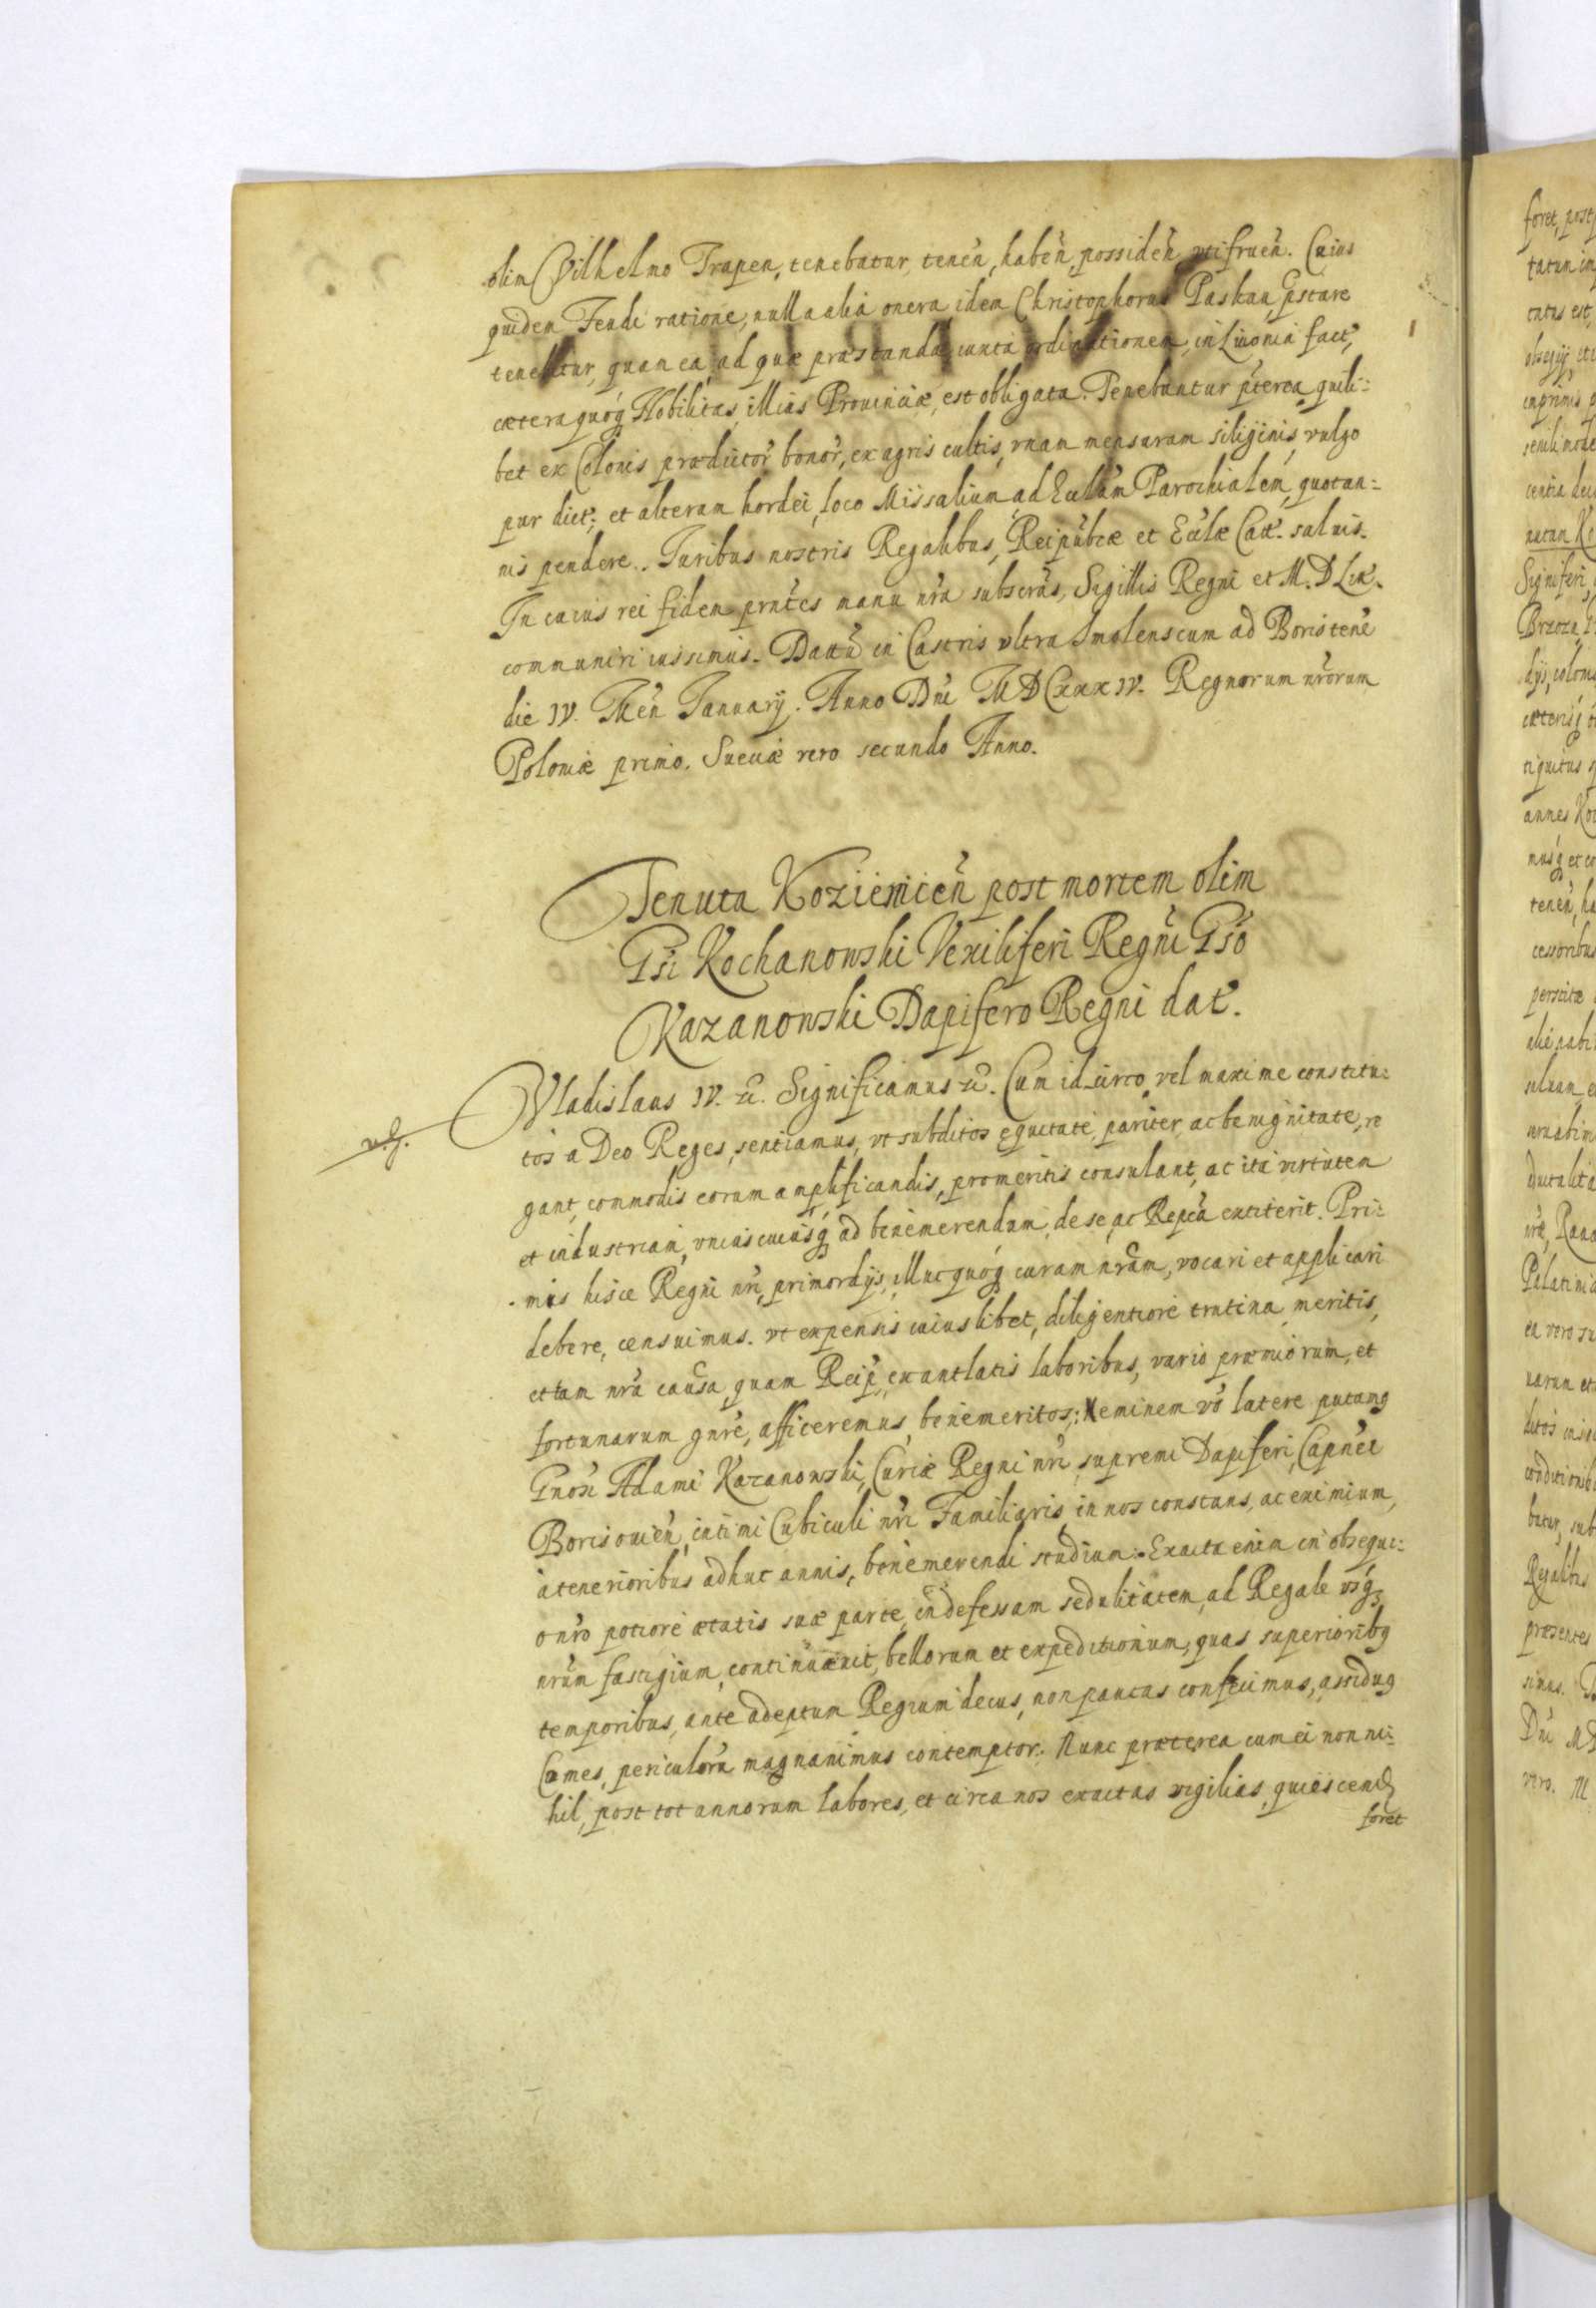 olim Vilhelmo Trapen, tenebatur, teneñ, habeñ, possideñ, vtifrueñ. Cuius
quidem Feudi ratione, nulla alia onera idem Christophorus Paskau, pstare
tenebitur, quam ea, ad quæ præstanda, iuxta ordinationem, in Liuonia fact,
cætera quoq Nobilitas, illius Prouinciæ, est obligata. Tenebuntur pterea quili:
bet ex Colonis prædictor bonor, ex agris cultis, vnam mensuram siliginis, vulgo
pur dict; et alteram hordei, loco Missalium, ad Ecclam Parochialem, quotan:
nis pendere. Iuribus nostris Regalibus, Reipubcæ et Ecclæ Catt. saluis.
In cuius rei fidem prntes manu nra subscras, Sigillis Regni et M. D Lit.
communiri iussimus. Datũ in Castris vltra Smolenscum ad Boristene
die IV. Meñ January. Anno Dni MDCXXXIV. Regnorum nrorum
Poloniæ primo. Sueciæ vero secundo Anno.
Tenuta Kozienicen̄ post mortem olim
Gsi Kochanowski Vexiliferi Regni Gso
Kazanowski Dapifero Regni dat.
Vladislaus IV. &. Significamus &. Cum idcirco vel maxime constitu:
tos a Deo Reges, sentiamus, vt subditos equitate, pariter, ac benignitate, re
gant, commodis eorum amplificandis, promeritis consulant, ac ita virtutem
et industriam, vniuscuiusq ad benemerendum, de se, ac Repca excitent. Pri:
mis hisce Regni nri, primordys, illuc quoq curam nram, vocari et applicari
debere, censuimus. vt expensis cuiuslibet, diligentiore trutina, meritis,
et tam nra causa, quam Reip, exantlatis laboribus, vario præmiorum, et
fortunarum gnre, afficeremus, benemeritos; Neminem vo latere putamq
Gnosi Adami Kazanowski, Curiæ Regni nri supremi Dapiferi, Capnei
Borisouien̄, intimi Cubiculi nri Familiaris, in nos constans, ac eximium,
a tenerioribus adhuc annis, benemerendi studium. Exacta enim in obsequi:
o nro potiore ætatis suæ parte, indefessam sedulitatem, ad Regale vsq
nrum fastigium, continuauit, bellorum et expeditionum, quas superioribq
temporibus, ante adeptum Regium decus, non paucas confecimus, assiduq
Comes, periculoru magnanimus contemptor. Nunc præterea cum ei non ni:
hil, post tot annorum labores, et circa nos exactas vigilias, quiescend
foret